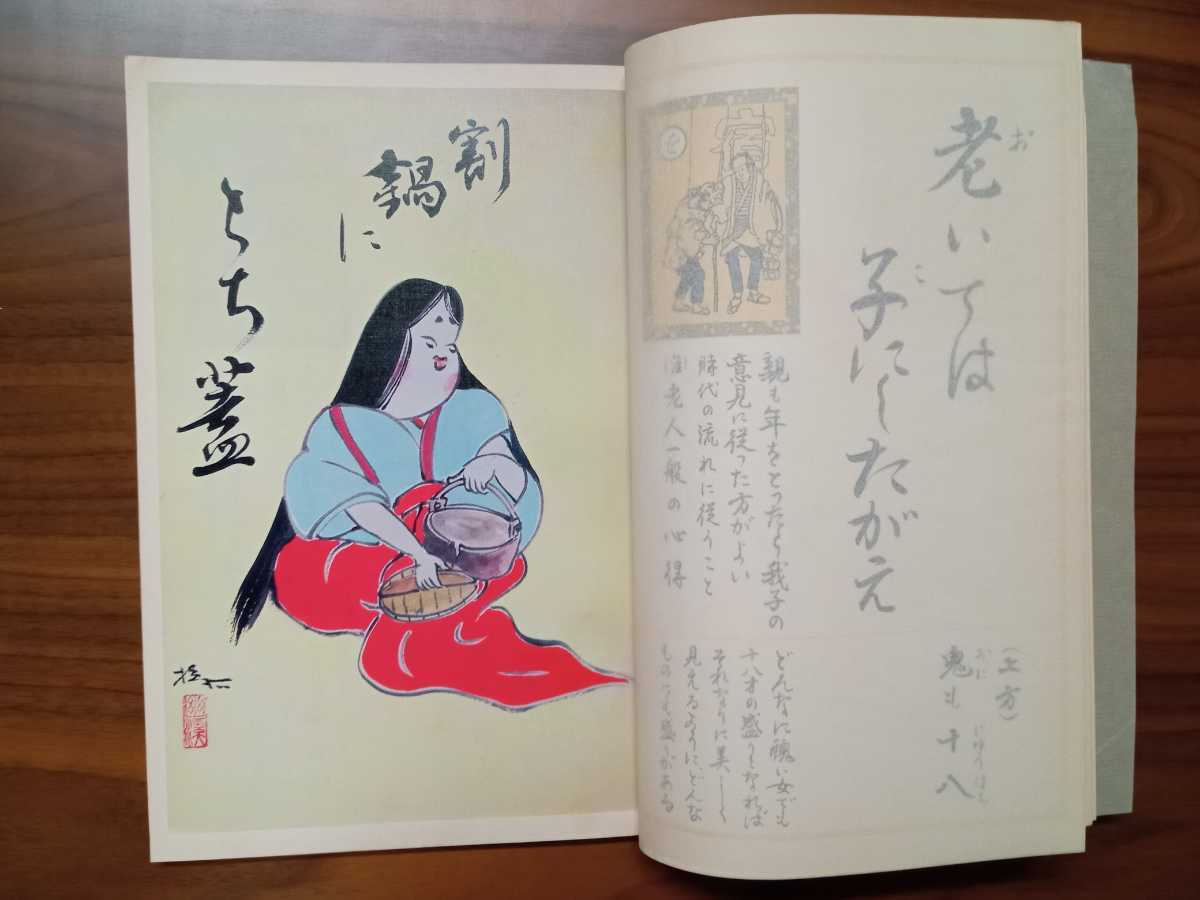 割
鍋
に
とち
蓋
老いては
お
子にしたがえ
こ
を
親も年をとったら我子の
意見に従った方がよい
時代の流れに従うこと
老人一般の心得
(上方)
鬼も十八
おに
じゅうはち
どんなに醜い女でも
十八才の盛りとなれば
それなりに美しく
見えるように、どんな
ものでも盛りがある